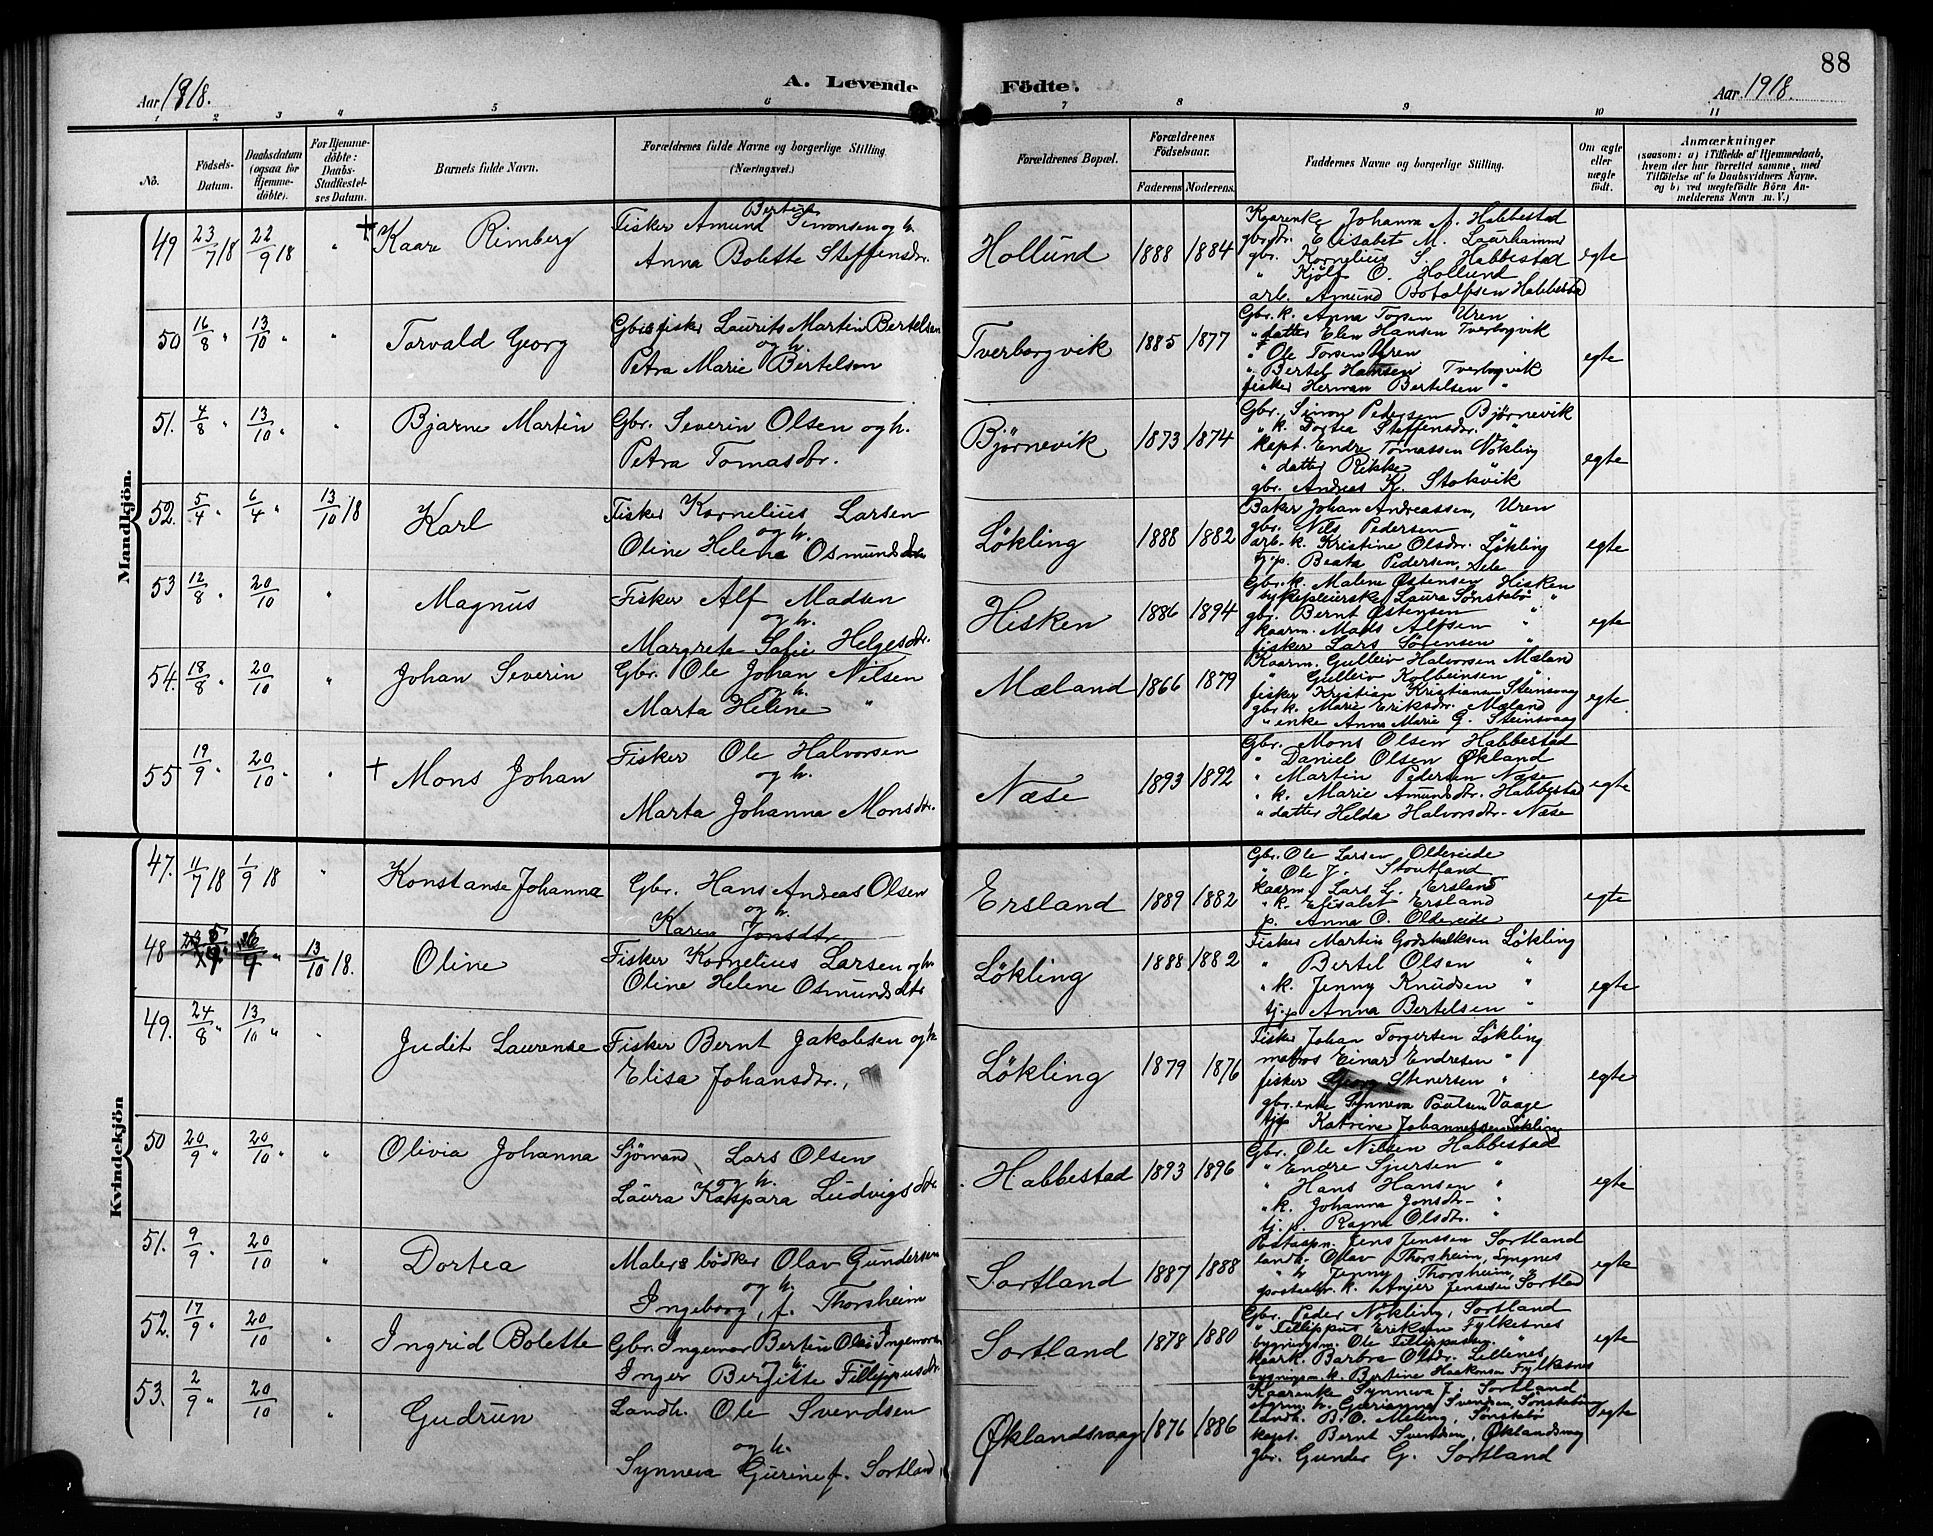 88
Aar 1918.
A. Levende Födte.
Aar 1918.
1 2 3 4 5 6 7 8 9 10 11
No.
Födsels-Datum.
Daabsdatum (ogsaa for Hjemmedöbte).
For Hjemmedöbte: Daabs-Stadfæstelses Datum.
Barnets fulde Navn.
Forældrenes fulde Navne og borgerlige Stilling (Næringsvei.)
Forældrenes Bopæl.
Forældrenes Födselsaar.
Faderens Moderens
Faddernes Navne og borgerlige Stilling.
Om ægte eller uægte födt.
Anmærkninger
(saasom: a) i Tilfælde af Hjemmedaab, hvem der har forrettet samme, med Tilföielse af to Daabsvidners Navne, og b) ved uægtefödte Börn Anmelderens Navn m. V.)
Mandkjön.
49 23/7 18 22/9 18 " + Kaare Rimberg
Fisker Amund Bertin Simonsen og h.
Anna Bolette Steffensdr.
Hollund 1888 1884
Kaarenke Johanna A. Habbestad
gbrdtr. Elisabet M. Laurhammer
gbr. Kornelius S. Habbestad
" Kjølf O. Hollund
arb. Amund Botolfsen Habbestad
egte
50 16/8 " 13/10 " " Torvald Georg
Gbr. fisker Laurits Martin Bertelsen
og h.
Petra Marie Bertelsen
Tverborgvik 1885 1877
Gbr. k. Anna Torsen Uren
" datter Elen Hansen Tverborgvik
" Ole Torsen Uren
" Bertel Hansen Tverborgvik
fisker Herman Bertelsen "
egte
51. 4/8 " 13/10 " " Bjarne Martin
Gbr. Severin Olsen og h.
Petra Tomasdr.
Bjørnevik 1873 1874
Gbr. Simon Pedersen Bjørnevik
" k. Dortea Steffensdr. "
kapt. Endre Tomassen Nökling
" datter Rikke
gbr. Andreas K. Stokvik
egte
52. 5/4 " 6/4 " 13/10 18 Karl
Fisker Kornelius Larsen
og h.
Oline Helene Osmundsdtr
Løkling 1888 1882
Baker Johan Andreassen, Uren
gbr. Nils Pedersen "
arb. k. Kristine Olsdr. Løkling
tj.p. Beata Pedersen, Sele
egte
53 12/8 " 20/10 " Magnus
Fisker Alf Madsen
og h.
Margrete Sofie Helgesdr.
Hisken 1886 1894
Gbr. k. Malene Østensen Hisken
sykepleierske Laura Sönstabö "
gbr. Bernt Østensen "
kaarm. Mads Alfsen "
fisker Lars Sørensen "
egte
54. 18/8 " 20/10 " Johan Severin
Gbr. Ole Johan Nilsen
og h.
Marta Helene "
Mæland 1866 1879
Kaarm. Gulleiv Halvorsen Mæland
" Gulleiv Kolbeinsen "
fisker Kristian Kristiansen Steinsvaag
gbr. k. Marie Eriksdr. Mæland
" enke Anna Marie G. Steinsvaag
egte
55 19/9 " 20/10 " " + Mons Johan
Fisker Ole Halvorsen
og h.
Marta Johanna Monsdtr.
Næse 1893 1892
Gbr. Mons Olsen Habbestad
" Daniel Olsen Økland
" Martin Pedersen Næse
" k. Marie Amundsdtr. Habbestad
" datter Helda Halvorsdtr. Næse
egte
Kvindekjön
47. 11/7 18 1/9 18 " Konstanse Johanna
Gbr. Hans Andreas Olsen
og h.
Karen Jonsdtr
Ersland 1889 1882
Gbr. Ole Larsen Oldereide
" Ole J. Stoutland
kaarm. Lars L. Ersland
" k. Elisabet Ersland
p. Anna O. Oldereide
egte
48 6/4 " 13/10 18. Oline
Fisker Kornelius Larsen og h.
Oline Helene Osmundsdtr
Løkling 1888 1882
Fisker Martin Godskalksen Løkling
" Bertel Olsen "
" k. Jenny Knudsen "
tj.p. Anna Bertelsen "
egte
49. 24/8 " 13/10 " " Judit Laurense
Fisker Bernt Jakobsen og h
Elisa Johansdr.
Løkling 1879 1876
Fisker Johan Torgersen Løkling
matros Einar Endresen "
fisker Georg Stenersen "
gbr. enke Synneva Paulsen Vaage
tjp Katrine Johannessen Løkling
egte
50 20/9 " 20/10 " " Olivia Johanna
Sjömand Lars Olsen
og h.
Laura Kaspara Ludvigsdtr
Habbestad 1893 1896
Gbr. Ole Nilsen Habbestad
" Endre Sjursen "
" Hans Hansen "
" k. Johanna Jonsdtr. "
tj. p. Ragna Olsdtr. "
egte
51. 9/9 20/10 " Dortea
Malersbödker Olav Gundersen
og h.
Ingeborg, f. Thorsheim
Sortland 1887 1888
Postaapn. Jens Jenssen Sortland
landh. Olav Thorsheim, Lyngnes
" h Jenny Thorsheim, "
k. Anjer Jensesen Sortland
egte
52. 17/9 20/10 " Ingrid Bolette
Gbr. Ingemar Bertin Olai Ingemarsen
h.
Inger Bergitte Fillippusdr.
Sortland 1878 1880
Gbr. Peder Nökling, Sortland
" Fillippus Eriksen Fylkesnes
bygningsm. Ole Fillippussen "
kaark. Barbra Olsdr. Lillenes
bygningsm. k. Bertine Haakonsen Fylkesnes
egte
53. 2/9 " 20/10 " Gudrun
Landh. Ole Svendsen
og h.
Synneva Gurine f. Sortland
Øklandsvaag 1876 1886
Kaarenke Synneva J. Sortland
h. Gurianna Svendsen, Sönstabö
landh. B. O. Meling, Sönstabö
kapt. Bernt Svendsen, Øklandsvaag
gbr. Gunder G. Sortland
egte